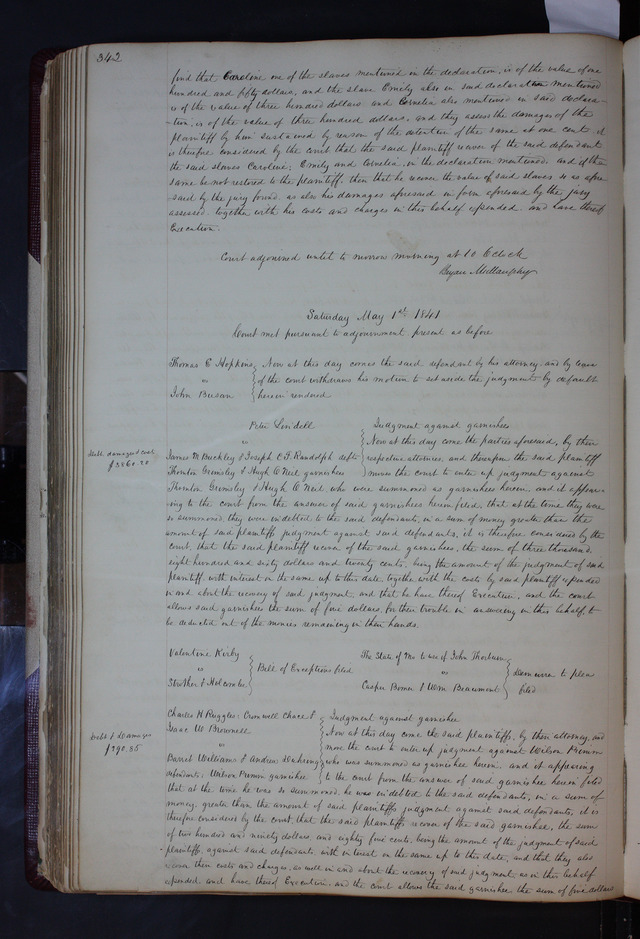 342
find that Caroline one of the slaves mentioned in the declaration, is of the value of one
hundred and fifty dollars, and the slave Emily also in said declaration mentioned
is of the value of three hundred dollars and Cornelia also mentioned in said declara-
-tion, is of the value of three hundred dollars, and they assess the damages of the
plaintiff by him sustained by reason of the detention of the same at one cent. it
is therefore considered by the court that the said plaintiff recover of the said defendant
the said slaves Caroline, Emily and Cornelia, in the declaration mentioned, and if the
same be not restored to the plaintiff, then that he recover the value of said slaves so as afore
-said by the jury found, as also his damages aforesaid in form aforesaid by the jury
assessed, together with his costs and charges in this behalf expended, and have thereof
Execution.
Court adjourned until to morrow morning at 10 O'Clock
Bryan Mullanphy
Saturday May 1st 1841
Court met pursuant to adjournment present as before
Thomas C Hopkins
"
John Brison
Now at this day comes the said defendant by his attorney, and by leave
of the court withdraws his motion to set aside the judgment by default
herein rendered
Peter Lindell
"
James M Buckley & Joseph C F Randolph defts
Thornton Grimsley & Hugh O Neil garnishees
Judgment against garnishees
Now at this day come the parties aforesaid, by their
respective attorneys, and thereupon the said plaintiff
moves the court to enter up judgment against
Debt damages & cost
$3860.20
Thornton Grimsley & Hugh O Neil who were summoned as garnishees herein, and it appear-
-ing to the court from the answer of said garnishees herein filed, that at the time they were
so summoned, they were indebted to the said defendants, in a sum of money greater than the
amount of said plaintiffs judgment against said defendants, it is therefore considered by the
court, that the said plaintiff recover of the said garnishees, the sum of three thousand
eight hundred and sixty dollars and twenty cents, being the amount of the judgment of said
plaintiff, with interest on the same up to this date, together with the costs by said plaintiff expended
in and about the recovery of said judgment, and that he have thereof Execution, and the court
allows said garnishees the sum of five dollars, for their trouble in answering in this behalf, to
be deducted out of the monies remaining in their hands.
Valentine Kirby
"
Strother & Holcombe
Bill of Exceptions filed
The State of Mo to use of John Thorburn
"
Casper Borner & Wm Beaumont
Demurrer to pleas
filed
Charles H Ruggles, Cromwell Chace &
Isaac W Brownell
"
Barrit Williams & Andrew
defendants, Wilson Primm garnishee
Judgment against garnishee
Now at this day come the said plaintiffs, by their attorney, and
move the court to enter up judgment against Wilson Primm
who was summoned as garnishee herein, and it appearing
to the court from the answer of said garnishee herein filed
Debt & Damages
$290.85
that at the time he was so summoned, he was indebted to the said defendants, in a sum of
money, greater than the amount of said plaintiffs judgment against said defendants, it is
therefore considered by the court, that the said plaintiffs recover of the said garnishee, the sum
of two hundred and ninety dollars, and eighty five cents, being the amount of the judgment of said
plaintiffs, against said defendants, with interest on the same up to this date, and that they also
recover their costs and charges, as well in and about the recovery of said judgment, as in this behalf
expended and have thereof Execution, and the court allows the said garnishee, the sum of five dollars